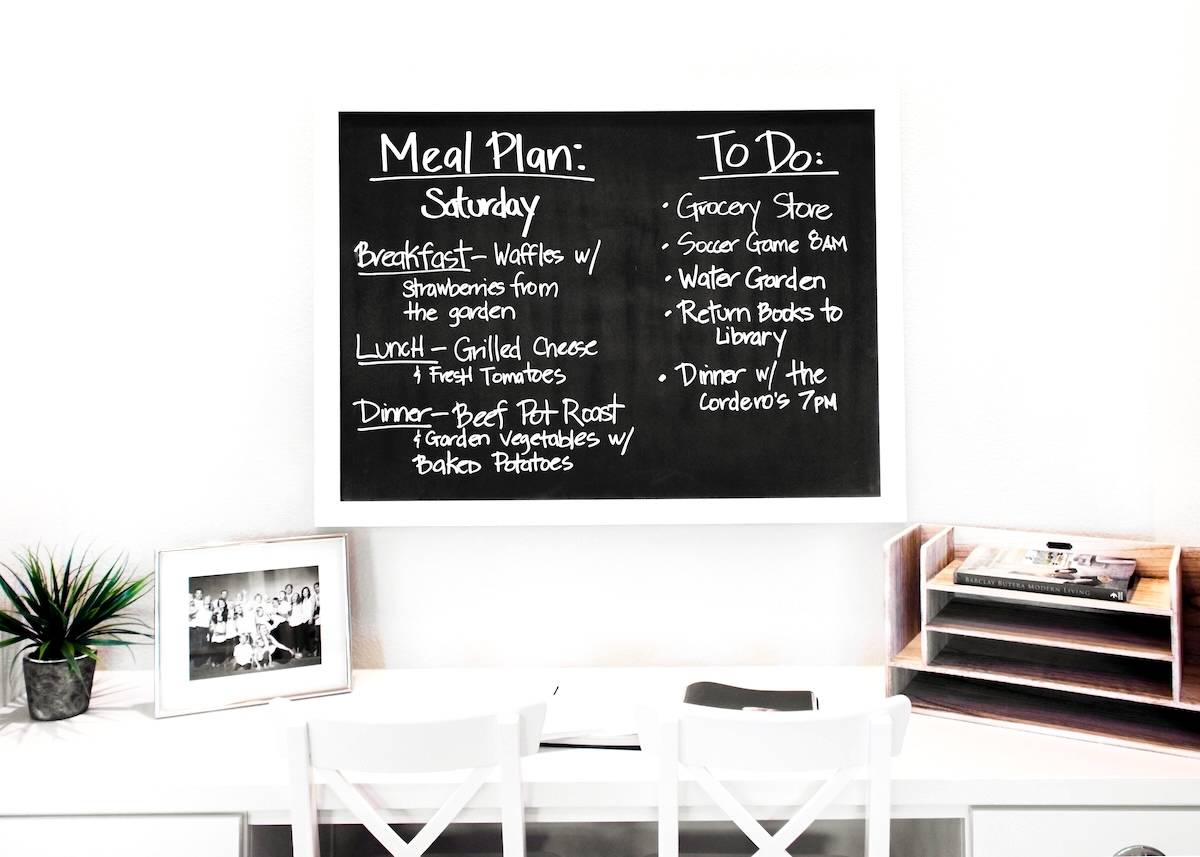 Meal Plan:
Saturday
Breakfast - Waffles w/
strawberries from
the garden
Lunch - Grilled Cheese
& Fresh Tomatoes
Dinner - Beef Pot Roast
& Garden vegetables w/
Baked Potatoes
To Do:
• Grocery Store
• Soccer Game 8AM
• Water Garden
• Return Books to
Library
• Dinner w/ the
Cordero's 7PM
BARCLAY BUTERA MODERN LIVING